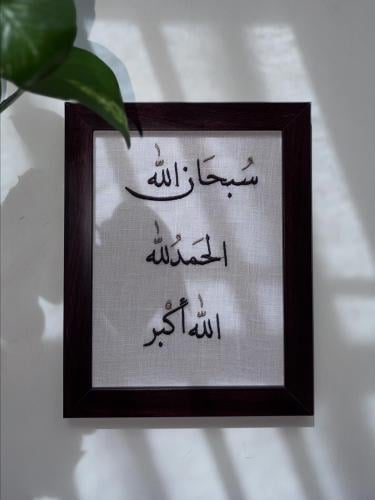 سُبحَان الله
الحَمدُ لله
الله أَكْبر